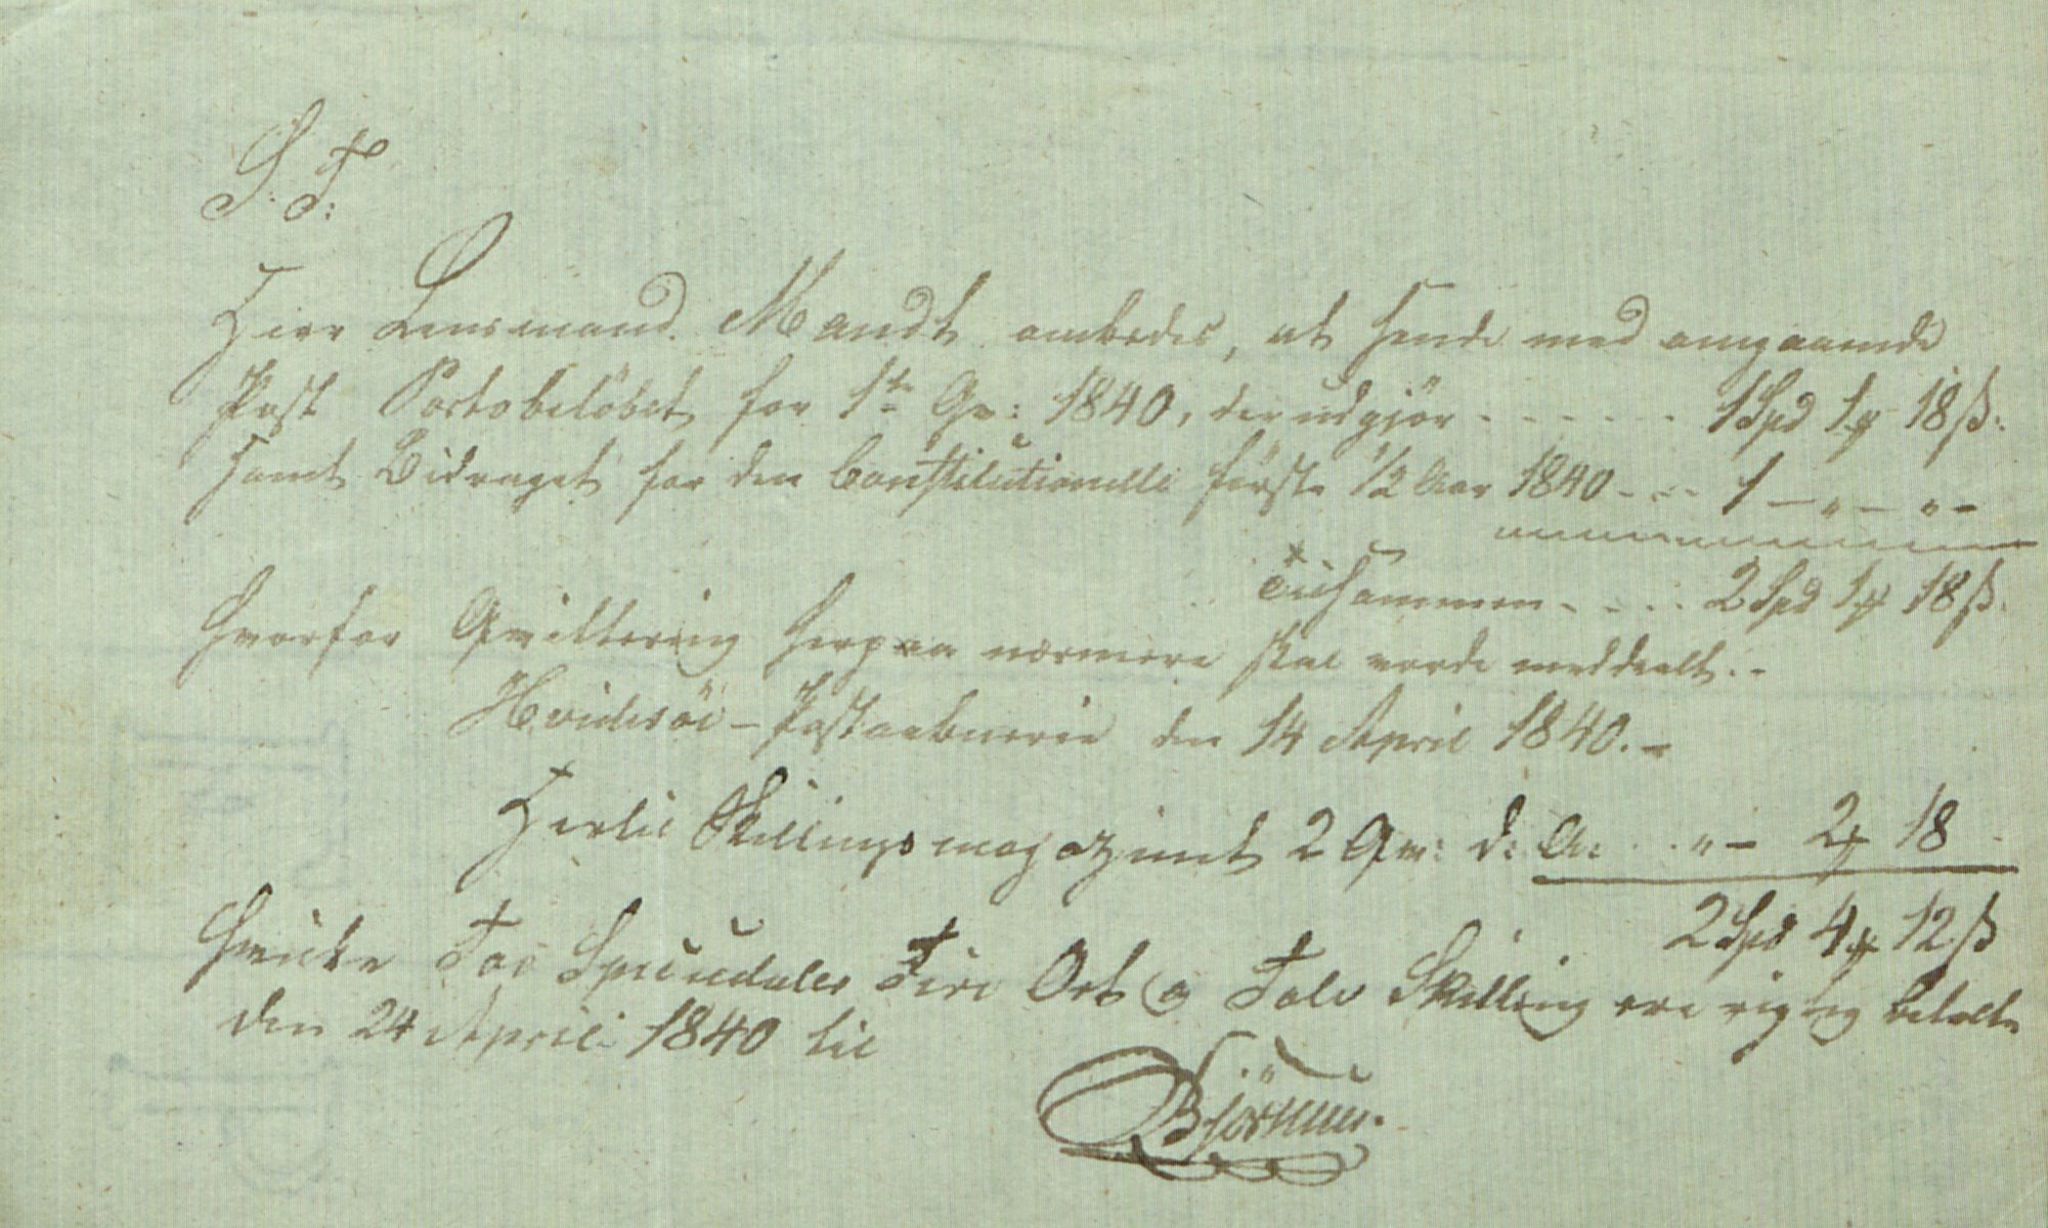 S. T:
Herr Lensmand Mandt ombedes, at sende med omgaaende
Post Portobelöbet for 1ste Qv: 1840, der udgjör - - - - - - 1 Spd 1 ꝥ 18 ß.
samt Bidraget for den Constitutionelle förste 1/2 Aar 1840 - - - 1 - " - " -
Tilsammen - - - - 2 Spd 1 ꝥ 18 ß.
hvorfor Qvittering herpaa nærmere skal vorde meddeelt. -
Hvidesöe - Postaabnerie den 14 April 1840. -
Hertil Skillingsmagazinet 2 Qv: d: A: . . " - 2 ꝥ 18
2 Spd 4 ꝥ 12 ß
Hvilke Toe Speciedaler Fire Ort og Tolv Skilling ere rigtig betalte
den 24 April 1840 til
Björnsen.